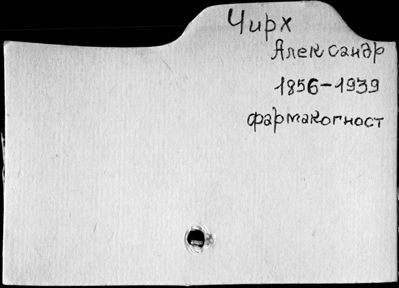 Чирх
Александр
1856-1939
фармакогност